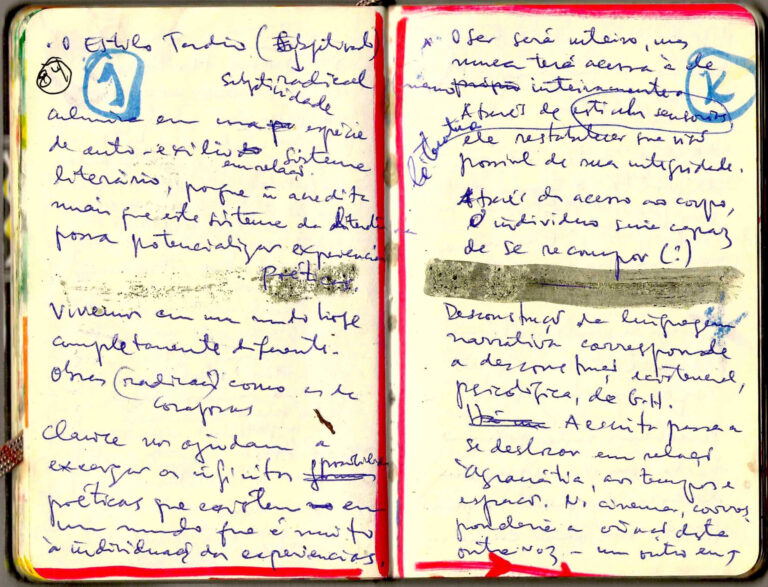 . O Estilo Tardio (Subjetivado)
84
J
radical
subjetividade
culmina em uma espécie
de auto-exílio do Sistema
em relaçã
literário, porque ñ acredita
mais que este sistema da literatura
possa potencializar experiências
Poéticas.
Vivemos em um mundo hoje
completamente diferente.
Obras (radicais) como as de
Clarice nos ajudam a
enxergar os infinitos
possibili
poéticas que existem em
um mundo que é muito
à individuaçã das experiências.
O Ser será inteiro, mas
nunca terá acesso à de
inteiramente
K
Através de
ele restabelecer
possível de sua integridade.
literatura
Através do acesso ao corpo,
O indivíduo seria capaz
de se recompor (?)
Desconstruçã da linguagem
narrativa corresponde
a desconstruçã existencial,
psicológica, de G.H.
A escrita passa a
se deslocar em relaçã
à gramática, ao tempo e
espaço. No cinema, corres
ponderia a criaçã desta
outra voz – um outro